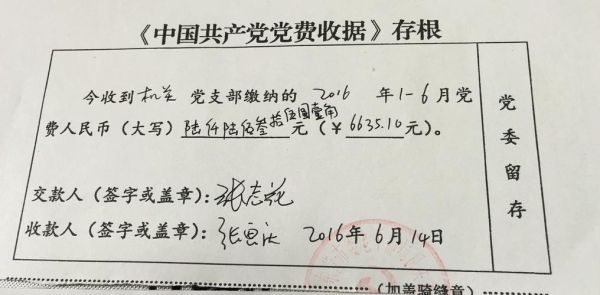 《中国共产党党费收据》存根
今收到机关党支部缴纳的 2016 年1-6月党
费人民币（大写）陆仟陆佰叁拾伍圆壹角元（￥6635.10元）。
交款人（签字或盖章）：张志
收款人（签字或盖章）：张 2016年6月14日
党委留存
（加盖骑缝章）